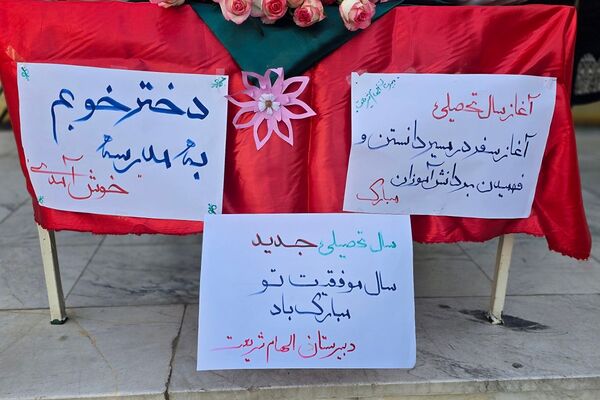 دختر خوبم
به مدرسه
خوش آمدی
آغاز سال تحصیلی
آغاز سفر در مسیر دانستن و
فهمیدن بر دانش آموزان
مبارک
سال تحصیلی جدید
سال موفقیت تو
مبارک باد
دبیرستان الهام شریعت